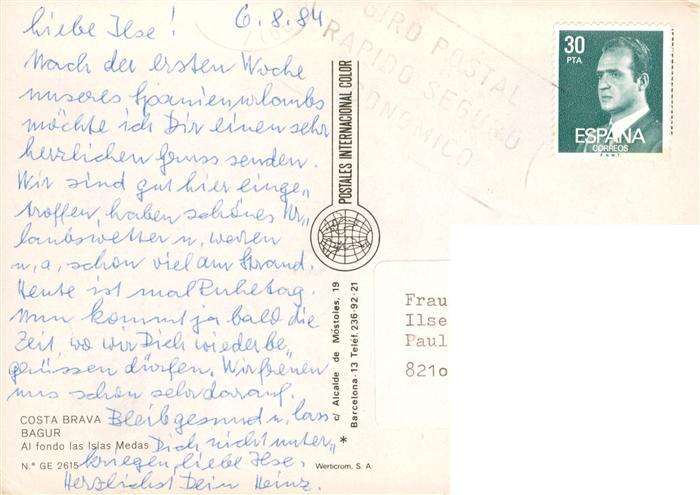 Liebe Ilse! 6.8.84
Nach der ersten Woche
unseres Spanienurlaubs
möchte ich Dir einen sehr
herzlichen Gruss senden.
Wir sind gut hier einge„
troffen, haben schönes Ur„
laubswetter u. waren
u, a, schon viel am Strand.
Heute ist mal Ruhetag.
Nun kommt ja bald die
Zeit, wo wir Dich wieder be„
grüssen dürfen. Wir freuen
uns schon sehr darauf.
Bleib gesund u, lass
Dich nicht unter„
kriegen, liebe Ilse.
Herzlichst Dein Heinz.
COSTA BRAVA
BAGUR
Al fondo las Islas Medas
N.º GE 2615
Werticrom, S. A
POSTALES INTERNACIONAL COLOR
c/ Alcalde de Móstoles, 19
Barcelona-13 Teléf. 236-92-21
GIRO POSTAL
RAPIDO SEGURO
ECONOMICO
30
PTA
ESPAÑA
CORREOS
F.N.M.T.
Frau
Ilse
Paul
8210